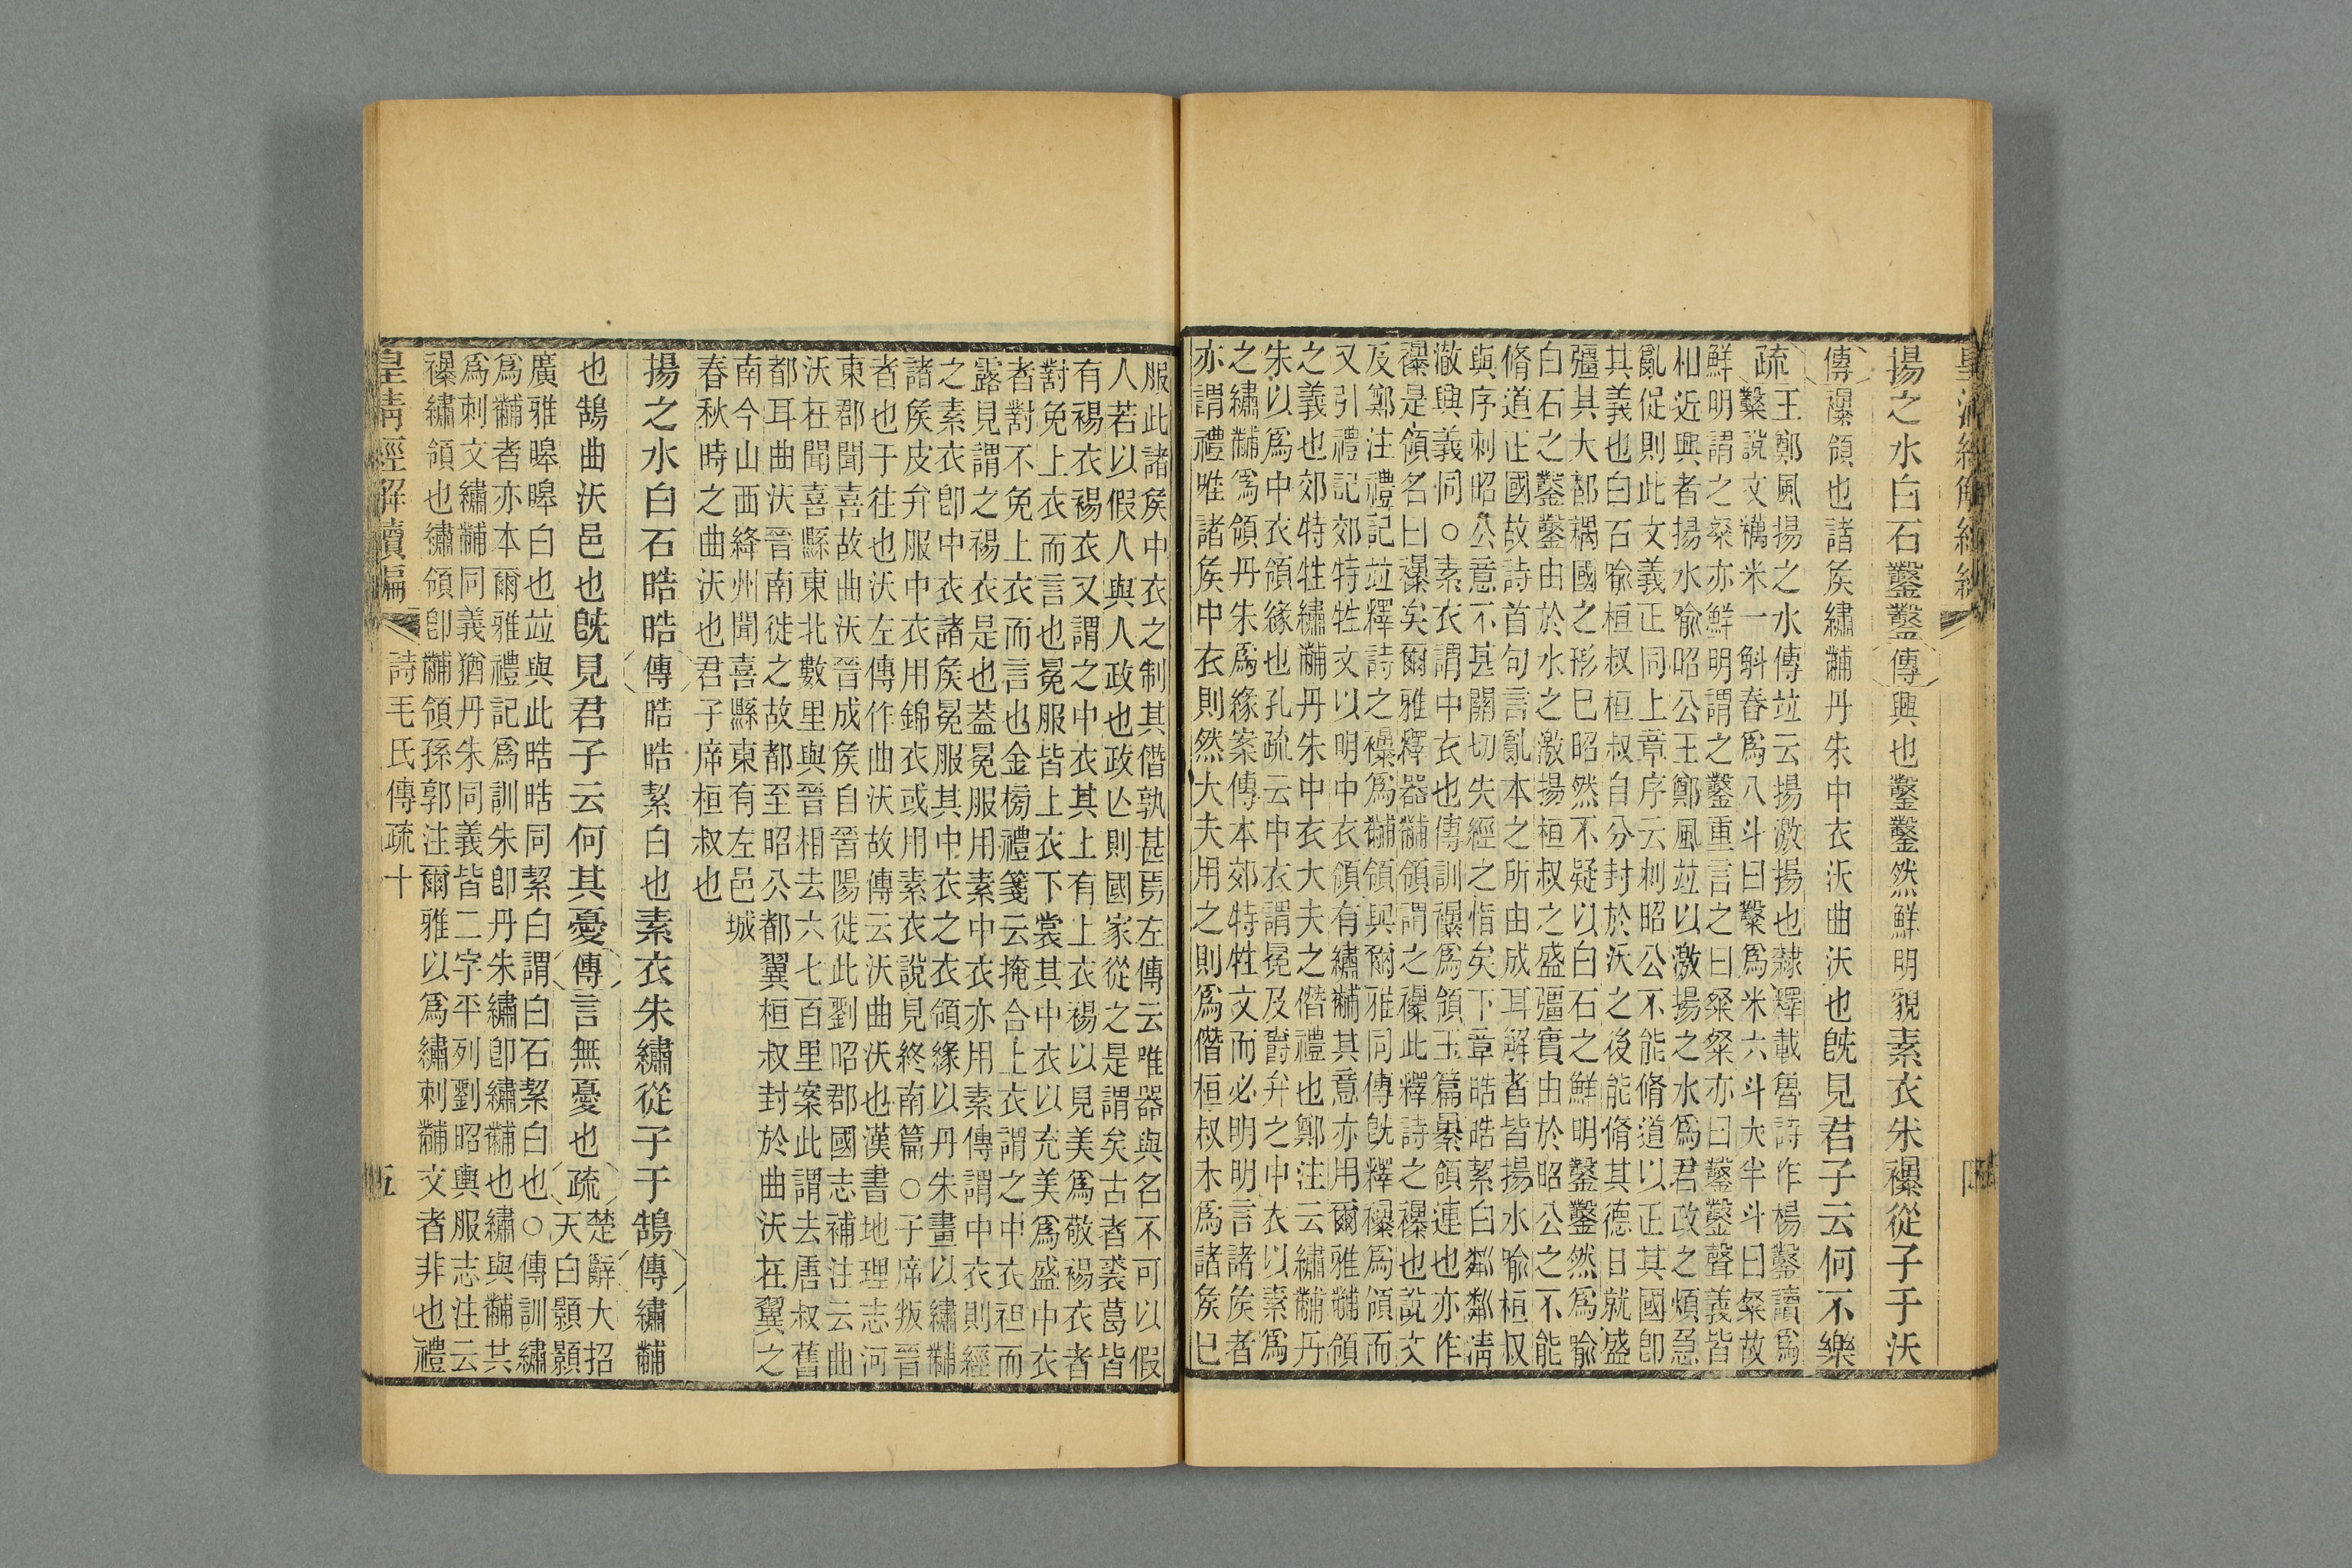 揚之水白石鑿鑿傳興也鑿鑿然鮮明貌素衣朱襮從子于沃
傳襮領也諸矦繡黼丹朱中衣沃曲沃也旣見君子云何不樂
疏
王鄭風揚之水傳竝云揚激揚也隸釋載魯詩作楊鑿讀爲
糳說文糲米一斛舂爲八斗曰糳爲米六斗大半斗曰粲故
鮮明謂之粲亦鮮明謂之鑿重言之曰粲粲亦曰鑿鑿聲義皆
相近興者揚水喩昭公王鄭風竝以激揚之水爲君政之煩急
亂促則此文義正同上章序云刺昭公不能脩道以正其國卽
其義也白石喩桓叔桓叔自分封於沃之後能脩其德日就盛
彊其大都耦國之形已昭然不疑以白石之鮮明鑿鑿然爲喩
白石之鑿鑿由於水之激揚桓叔之盛彊實由於昭公之不能
脩道正國故詩首句言亂本之所由成耳解者皆揚水喩桓叔
與序刺昭公意不甚關切失經之恉矣下章晧晧絜白粼粼淸
澈與義同○素衣謂中衣也傳訓襮爲領玉篇㬥領連也亦作
襮是領名曰襮矣爾雅釋器黼領謂之襮此釋詩之襮也說文
及鄭注禮記竝釋詩之襮爲黼領與爾雅同傳旣釋襮爲領而
又引禮記郊特牲文以明中衣領有繡黼其意亦用爾雅黼領
之義也郊特牲繡黼丹朱中衣大夫之僭禮也鄭注云繡黼丹
朱以爲中衣領緣也孔疏云中衣謂冕及爵弁之中衣以素爲
之繡黼爲領丹朱爲緣案傳本郊特牲文而必明明言諸矦者
亦謂禮唯諸矦中衣則然大夫用之則爲僭桓叔未爲諸矦已
服此諸矦中衣之制其僭孰甚焉左傳云唯器與名不可以假
人若以假人與人政也政亾則國家從之是謂矣古者裘葛皆
有裼衣裼衣又謂之中衣其上有上衣裼以見美爲敬裼衣者
對免上衣而言也冕服皆上衣下裳其中衣以充美爲盛中衣
者對不免上衣而言也金榜禮箋云掩合上衣謂之中衣袒而
露見謂之裼衣是也蓋冕服用素中衣亦用素傳謂中衣則經
之素衣卽中衣諸矦冕服其中衣之衣領緣以丹朱畫以繡黼
諸矦皮弁服中衣用錦衣或用素衣說見終南篇○子席叛晉
者也于往也沃左傳作曲沃故傳云沃曲沃也漢書地理志河
東郡聞喜故曲沃晉成矦自晉陽徙此劉昭郡國志補注云曲
沃在聞喜縣東北數里與晉相去六七百里案此謂去唐叔舊
都耳曲沃晉南徙之故都至昭公都翼桓叔封於曲沃在翼之
南今山西絳州聞喜縣東有左邑城
春秋時之曲沃也君子席桓叔也
揚之水白石晧晧傳晧晧絜白也素衣朱繡從子于鵠傳繡黼
也鵠曲沃邑也旣見君子云何其憂傳言無憂也疏
楚辭大招
天白顥顥
廣雅皞皞白也竝與此晧晧同絜白謂白石絜白也○傳訓繡
爲黼者亦本爾雅禮記爲訓朱卽丹朱繡卽繡黼也繡與黼共
爲刺文繡黼同義猶丹朱同義皆二字平列劉昭輿服志注云
襮繡領也繡領卽黼領孫郭注爾雅以爲繡刺黼文者非也禮
皇淸經解續編 詩毛氏傳疏十 五